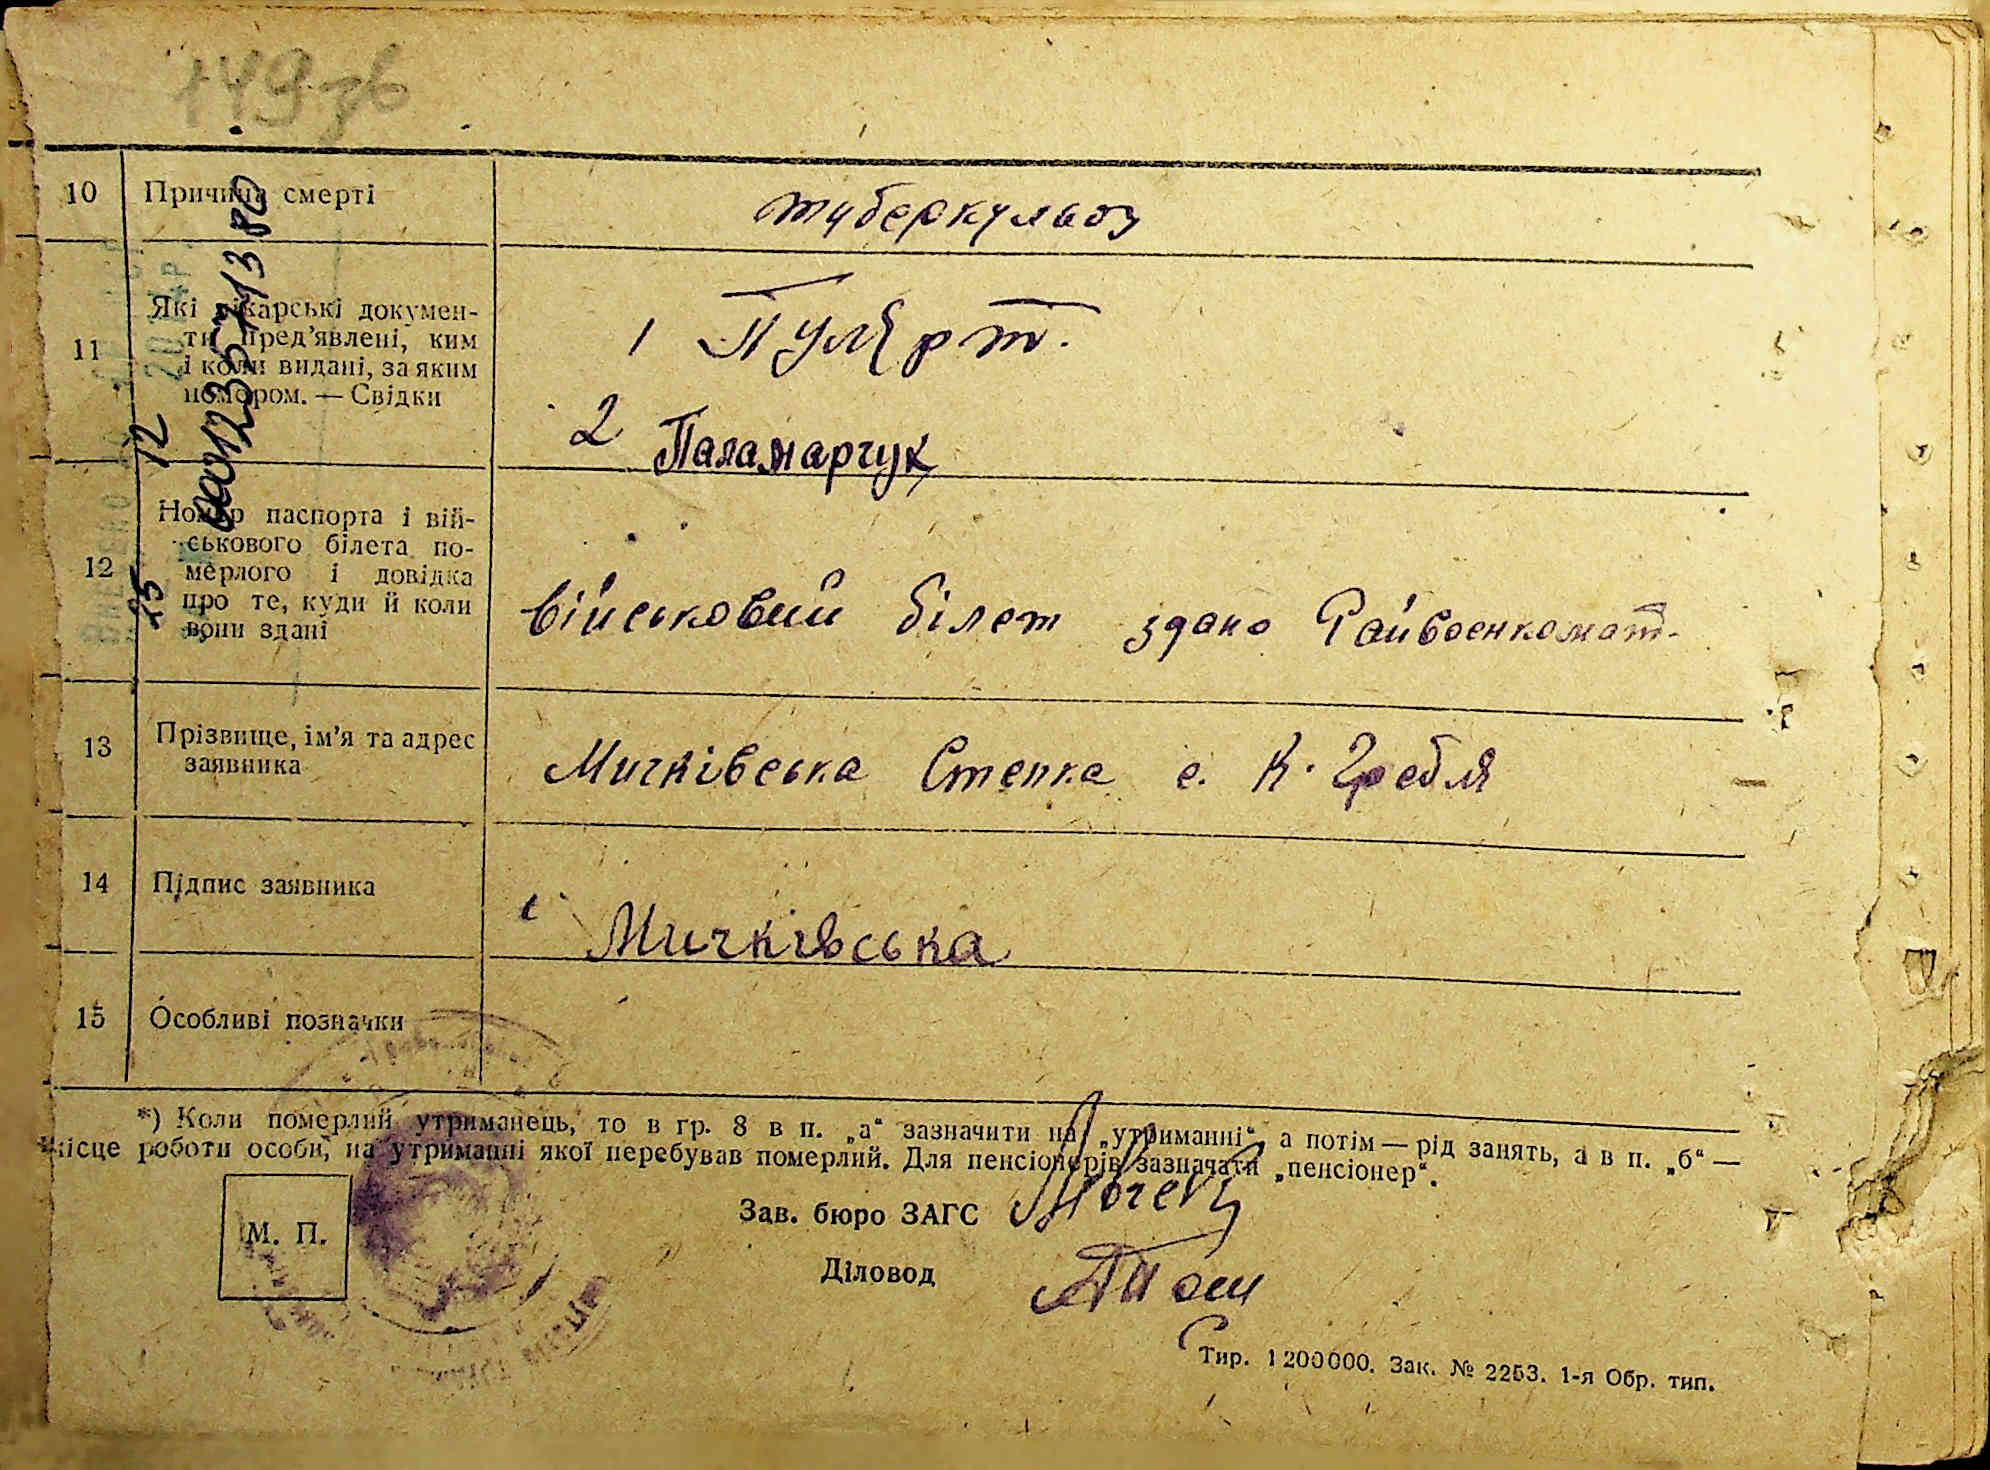 149 зв
10 Причина смерті туберкульоз
11 Які лікарські докумен-
ти пред'явлені, ким
і коли видані, за яким
номером. — Свідки
1
2 Паламарчук
12 Номер паспорта і вій-
ськового білета по-
мерлого і довідка
про те, куди й коли
вони здані
військовий білет здано Райвоенкомат.
13 Прізвище, ім'я та адрес
заявника
Мичківська Степка с. К. Гребля
14 Підпис заявника
Мичківська
15 Особливі позначки
*) Коли померлий утриманець, то в гр. 8 в п. „а“ зазначити на „утриманні“ а потім — рід занять, а в п. „б“ —
місце роботи особи, на утриманні якої перебував померлий. Для пенсіонерів зазначати „пенсіонер“.
М. П.
Зав. бюро ЗАГС
Діловод
Тир. 1200000. Зак. № 2253. 1-я Обр. тип.